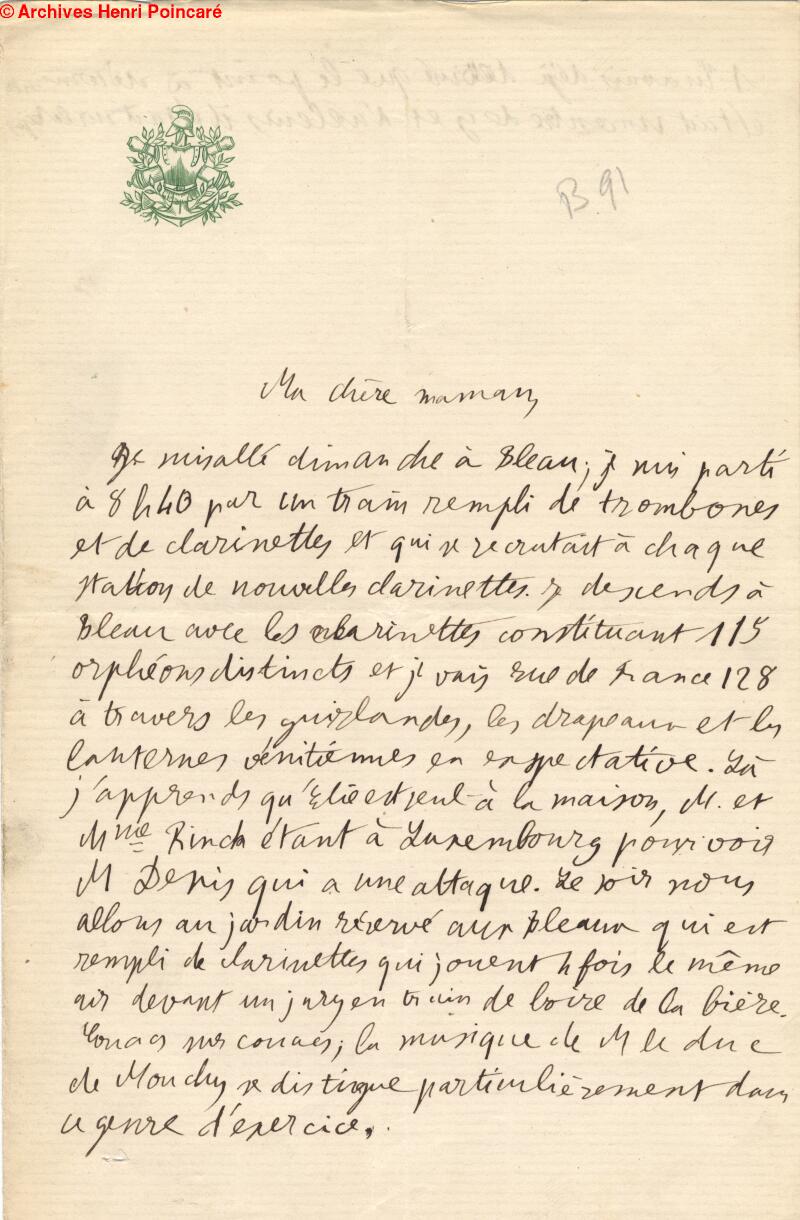 © Archives Henri Poincaré
B 91
Ma chère maman,
Je suis allé dimanche à Bleau; je suis parti
à 8 h 40 par un train rempli de trombones
et de clarinettes et qui se recrutait à chaque
station de nouvelles clarinettes. Je descends à
Bleau avec les clarinettes constituant 115
orphéons distincts et je vais rue de France 128
à travers les guirlandes, les drapeaux et les
lanternes vénitiennes en expectative. Là
j'apprends qu'Elie est seul à la maison, M. et
Mme Rinck étant à Luxembourg pour voir
M Denis qui a une attaque. Le soir nous
allons au jardin réservé aux Bleaux qui est
rempli de clarinettes qui jouent h fois le même
air devant un jury en train de boire de la bière.
Couacs sur couacs; la musique de M le duc
de Mouchy se distingue particulièrement dans
ce genre d'exercice.